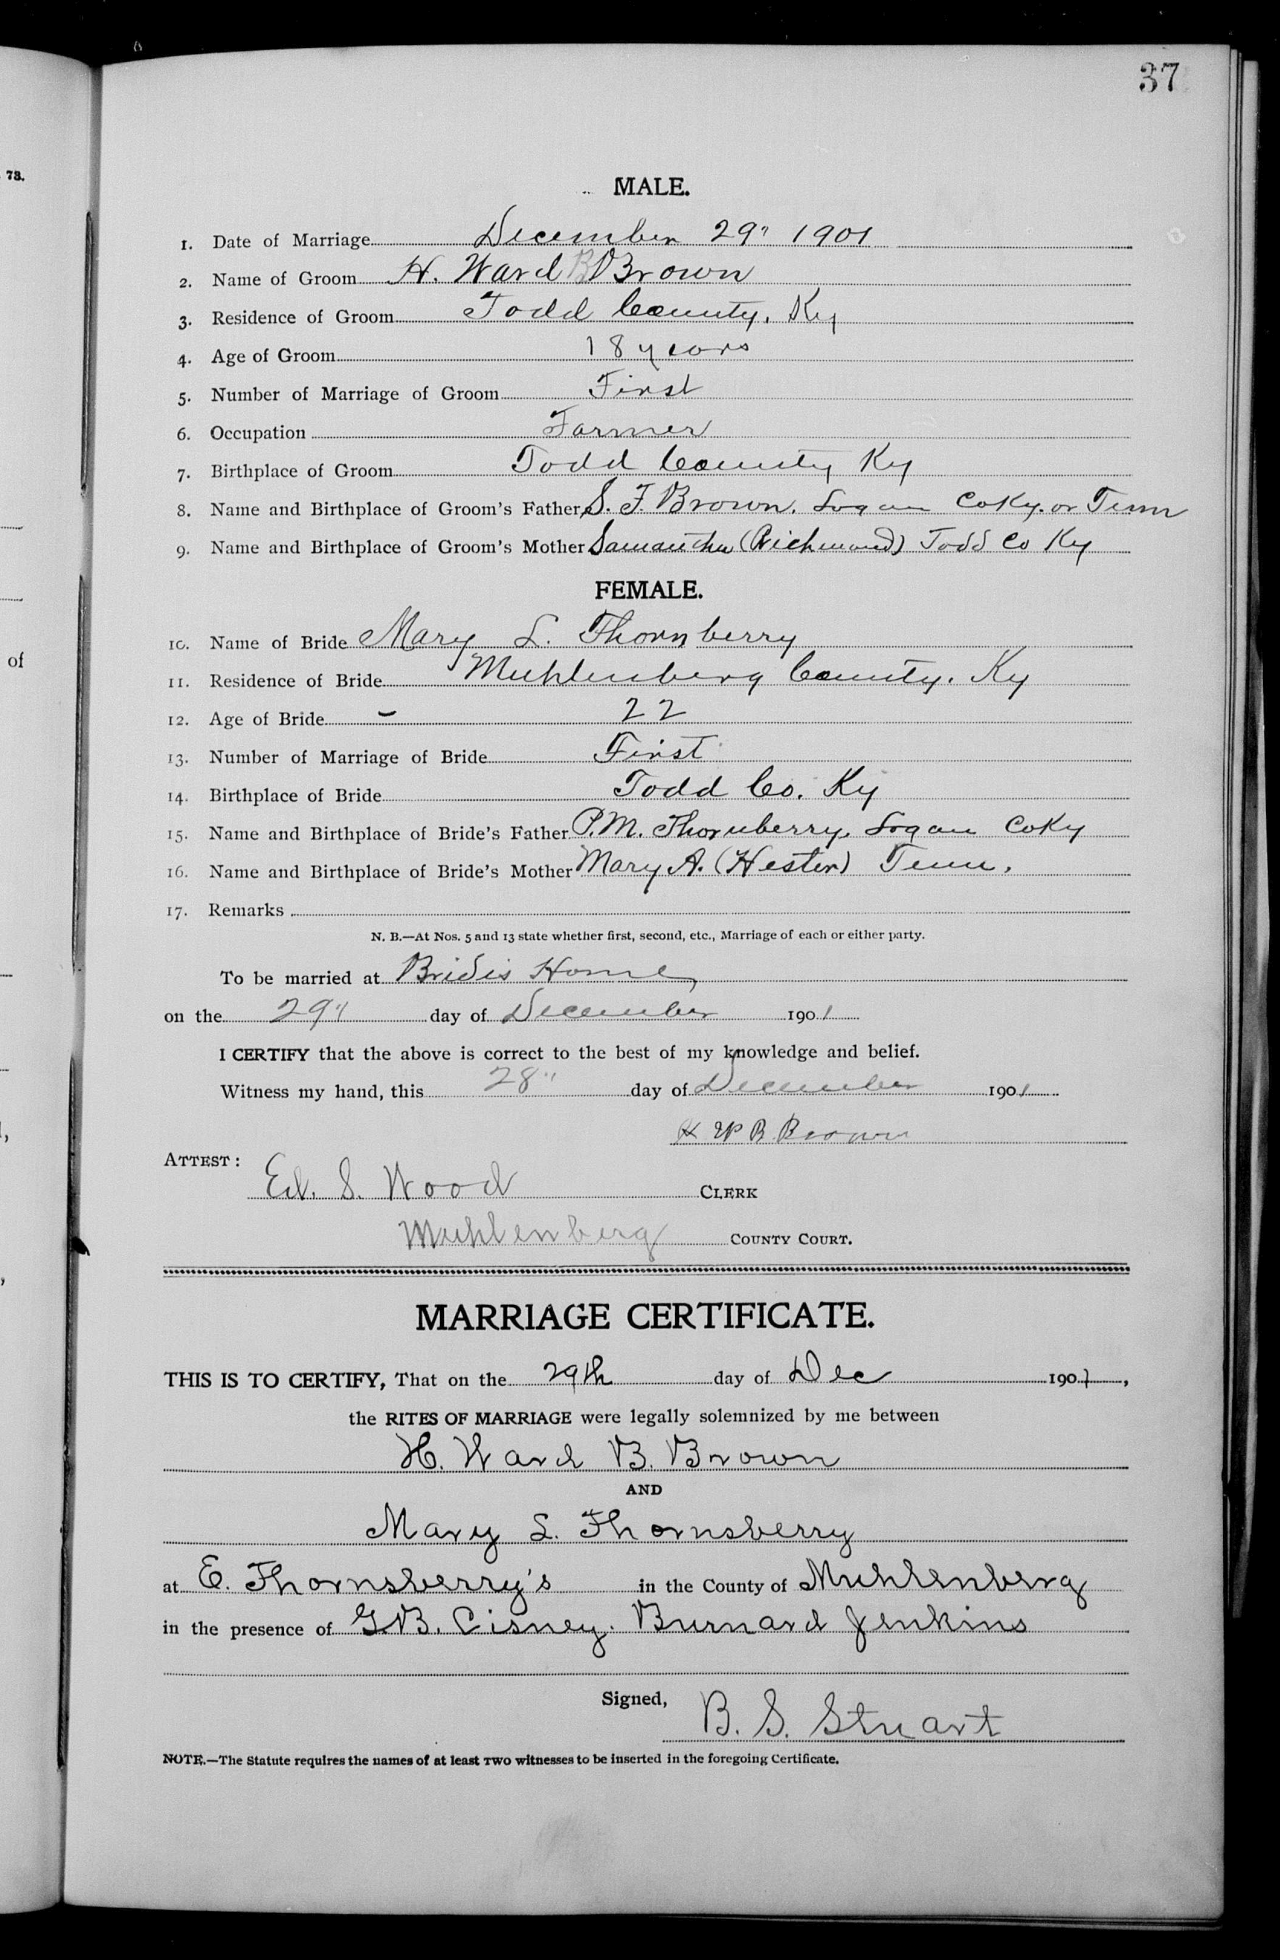 37
73.
MALE.
1. Date of Marriage December 29" 1901
2. Name of Groom H. Ward B Brown
3. Residence of Groom Todd County, Ky
4. Age of Groom 18 years
5. Number of Marriage of Groom First
6. Occupation Farmer
7. Birthplace of Groom Todd County Ky
8. Name and Birthplace of Groom's Father S. F. Brown, Logan Co Ky. or Tenn
9. Name and Birthplace of Groom's Mother Samantha (Richmond) Todd Co Ky
FEMALE.
10. Name of Bride Mary L. Thornberry
of
11. Residence of Bride Muhlenberg County, Ky
12. Age of Bride 22
13. Number of Marriage of Bride First
14. Birthplace of Bride Todd Co. Ky
15. Name and Birthplace of Bride's Father P.M. Thornberry, Logan Co Ky
16. Name and Birthplace of Bride's Mother Mary A. (Hester) Tenn.
17. Remarks
N. B.—At Nos. 5 and 13 state whether first, second, etc., Marriage of each or either party.
To be married at Brides Home,
on the 29" day of December 1901
I CERTIFY that the above is correct to the best of my knowledge and belief.
Witness my hand, this 28" day of December 1901
B. Brown
ATTEST: Ed. S. Wood CLERK
Muhlenberg COUNTY COURT.
MARRIAGE CERTIFICATE.
THIS IS TO CERTIFY, That on the 29th day of Dec 1901,
the RITES OF MARRIAGE were legally solemnized by me between
H. Ward B. Brown
AND
Mary L. Thornsberry
at E. Thornsberry's in the County of Muhlenberg
in the presence of G.B. Cisney. Burnard Jenkins
Signed, B. S. Stuart
NOTE.—The Statute requires the names of at least TWO witnesses to be inserted in the foregoing Certificate.